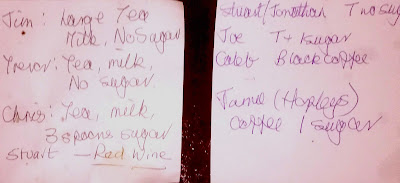 Jim: Large Tea
Milk, No Sugar
Trevor: Tea, milk,
No sugar
Chris: Tea, milk,
3 spoons sugar
Stuart - Red Wine
Stuart/Jonathan Two sug
Joe T + 1 sugar
Caleb Black coffee
Jamie (Horleys)
coffee 1 sugar